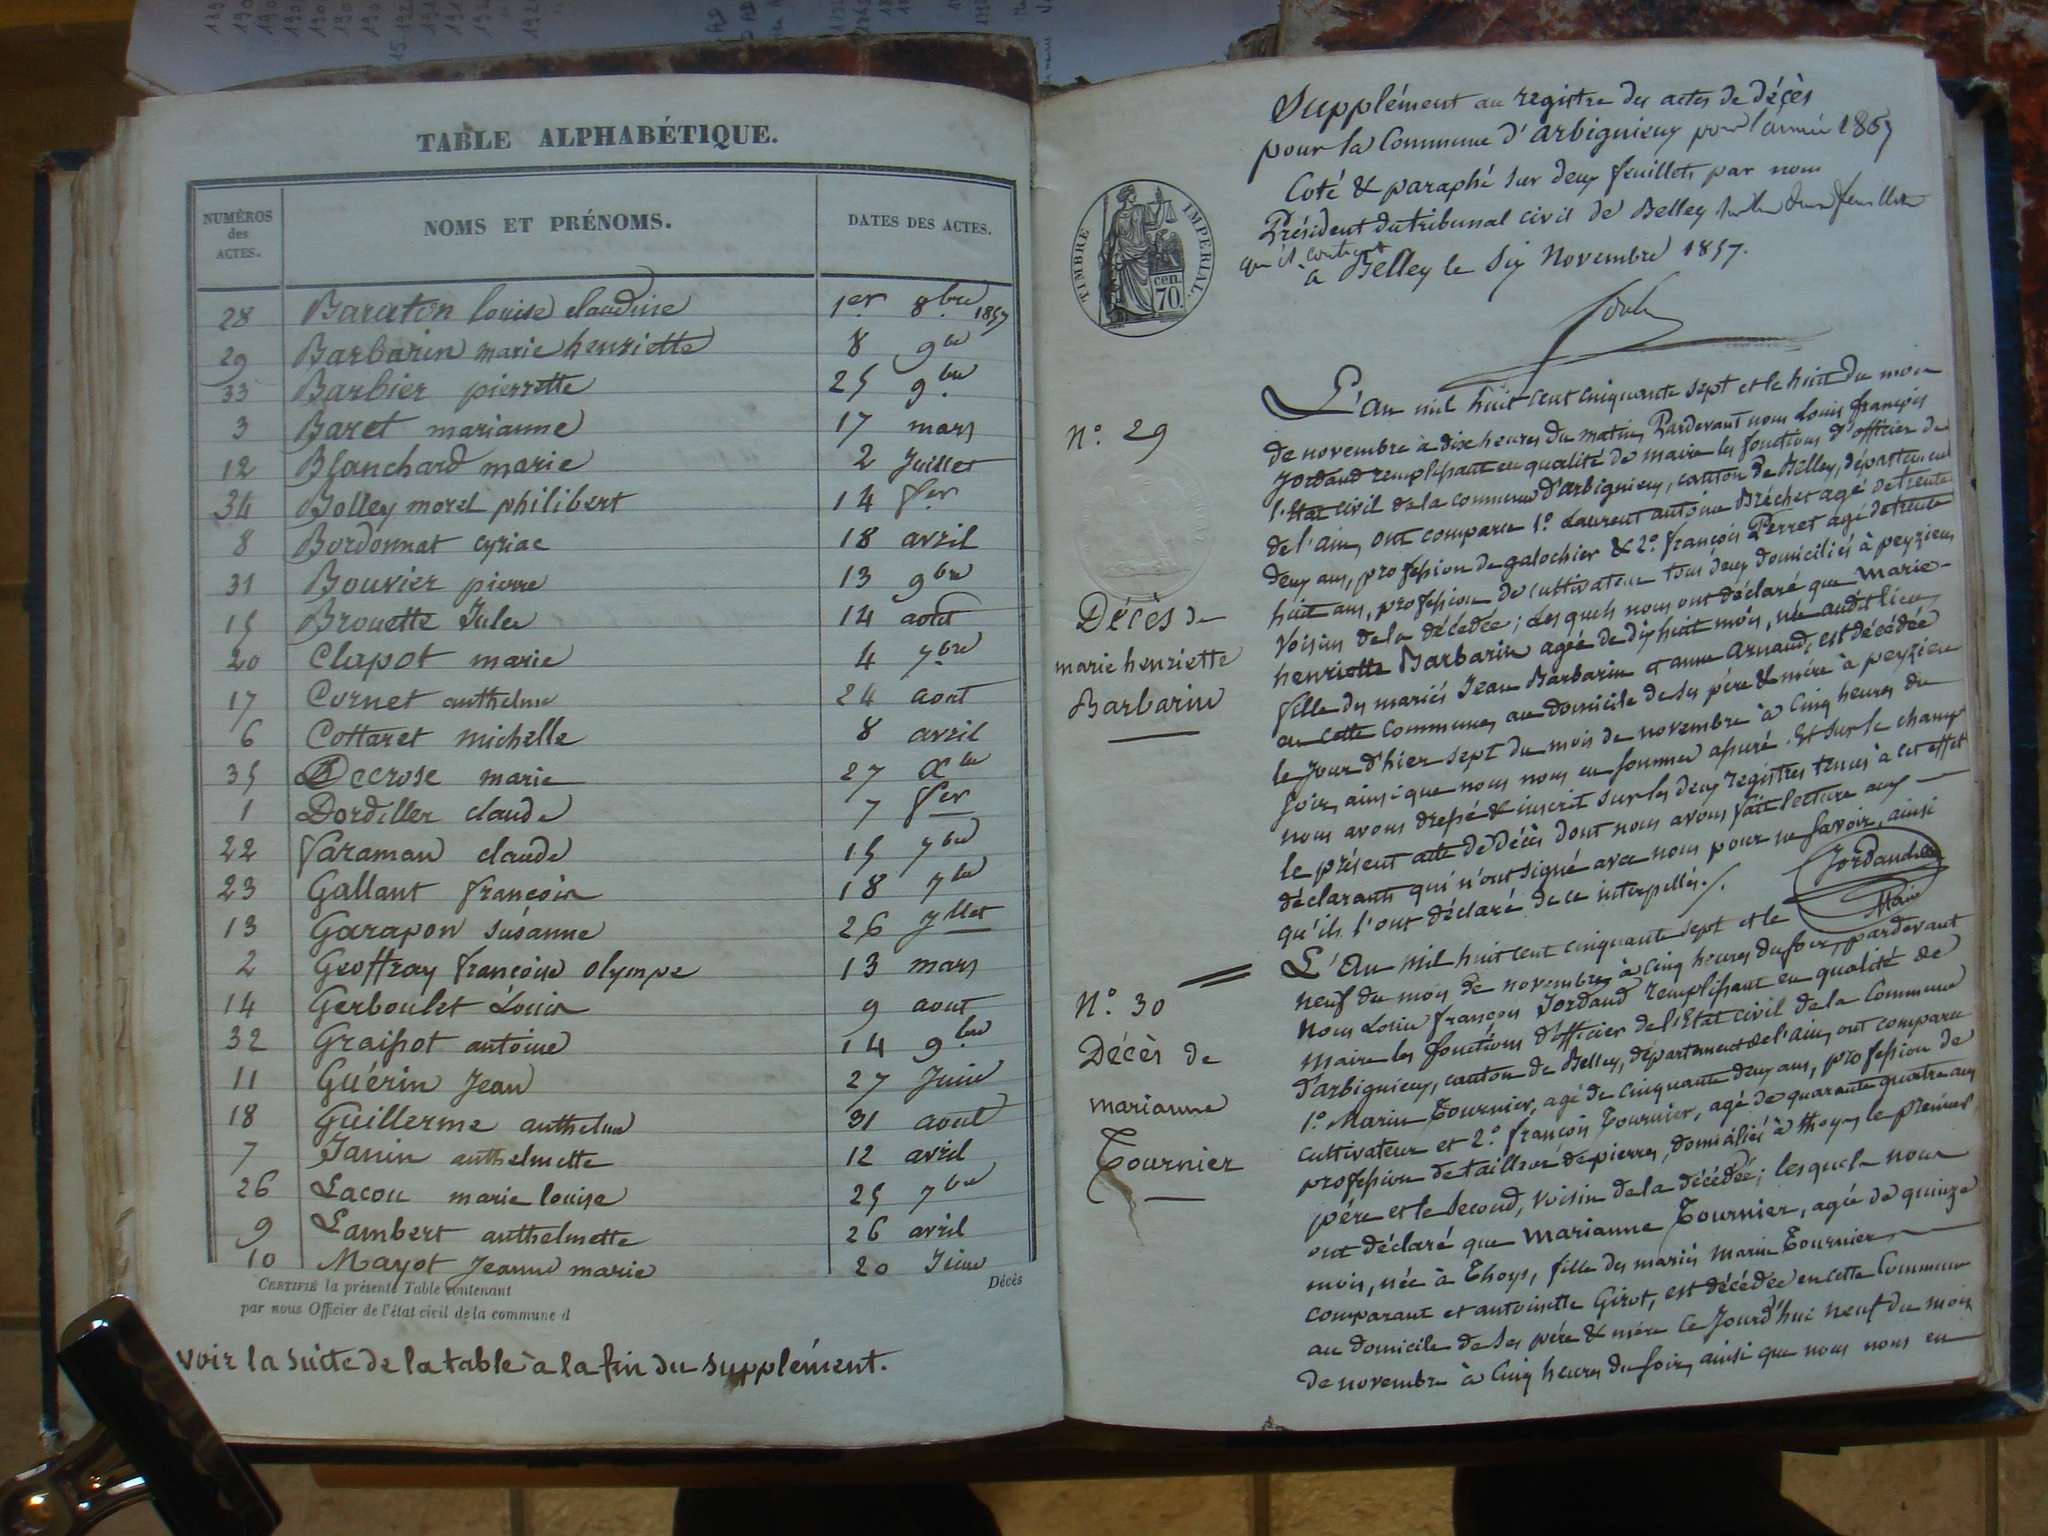 TABLE ALPHABÉTIQUE.
NUMÉROS des ACTES. NOMS ET PRÉNOMS. DATES DES ACTES.
28 Baraton louise claudine 1er 8bre 1857
29 Barbarin marie henriette 8 9bre
33 Barbier pierrette 25 9bre
3 Baret marianne 17 mars
12 Blanchard marie 2 Juillet
34 Bolley morel philibert 14
8 Bordonnat cyriac 18 avril
31 Bouvier pierre 13 9bre
15 Brouette Jules 14 aout
20 Clapot marie 4 7bre
17 Cornet anthelme 24 aout
6 Cottaret michelle 8 avril
35 Decrose marie 27 Xbre
1 Dordiller claude 7
22 Faraman claude 15 7bre
23 Gallant françois 18 7bre
13 Garapon susanne 26 Jllet
2 Geoffray françoise olympe 13 mars
14 Gerboulet Louis 9 aout
32 Graissot antoine 14 9bre
11 Guérin Jean 27 Juin
18 Guillerme anthelme 31 aout
7 Janin anthelmette 12 avril
26 Lacou marie louise 25 7bre
9 Lambert anthelmette 26 avril
10 Mayot Jeanne marie 20 Juin
CERTIFIÉ la présente Table contenant Décès
par nous Officier de l'état civil de la commune d
voir la suite de la table à la fin du supplément.
Supplément au registre des actes de décès
pour la Commune d'arbignieux pour l'année 1857
Coté & paraphé sur deux feuillets par nous
Président du tribunal civil de Belley
qu'il contient
a Belley le six Novembre 1857.
TIMBRE IMPERIAL.
cen. 70.
N° 29
Décès de
marie henriette
Barbarin
L'an mil huit cent cinquante sept et le huit du mois
de novembre à dix heures du matin, Pardevant nous Louis françois
Jordand remplissant en qualité de maire les fonctions d'officier de
l'Etat civil de la commune d'arbignieux, canton de Belley, département
de l'ain, ont comparu 1° Laurent antoine Bréchet agé de trente
deux ans, profession de galochier & 2° françois Perret agé de trente
huit ans, profession de cultivateur tous deux domiciliés à peyzieu
voisins de la décédée; Lesquels nous ont déclaré que Marie-
henriette Barbarin agée de dix huit mois, née audit lieu,
fille des mariés Jean Barbarin et anne Arnaud, est décédée
en cette Commune, au domicile de ses père & mère à peyzieu
le Jour d'hier sept du mois de novembre à Cinq heures du
soir, ainsi que nous nous en sommes assuré. Et sur le champ
nous avons dressé & inscrit sur les deux registres tenus à cet effet
le présent acte de Décès dont nous avons fait lecture aux
déclarants qui n'ont signé avec nous pour ne savoir, ainsi
qu'ils l'ont déclaré de ce interpellés./.
Jordand
Maire
N° 30
Décès de
marianne
Tournier
L'An mil huit cent cinquante sept et le
neuf du mois de novembre, à Cinq heures du soir, pardevant
Nous Louis françois Jordand remplissant en qualité de
Maire les fonctions d'officier de l'Etat civil de la Commune
d'arbignieux, canton de Belley, département de l'ain, ont comparu
1° Marin Tournier, agé de Cinquante deux ans, profession de
cultivateur et 2° françois Tournier, agé de quarante quatre ans
profession de tailleur de pierres, domiciliés à thoys, le premier
père et le second, voisin de la décédée; lesquels nous
ont déclaré que Marianne Tournier, agée de quinze
mois, née à Thoys, fille des mariés Marin Tournier
comparant et antoinette Girot, est décédée en cette Commune
au domicile de ses père & mère ce Jourd'hui neuf du mois
de novembre à Cinq heures du soir, ainsi que nous nous en